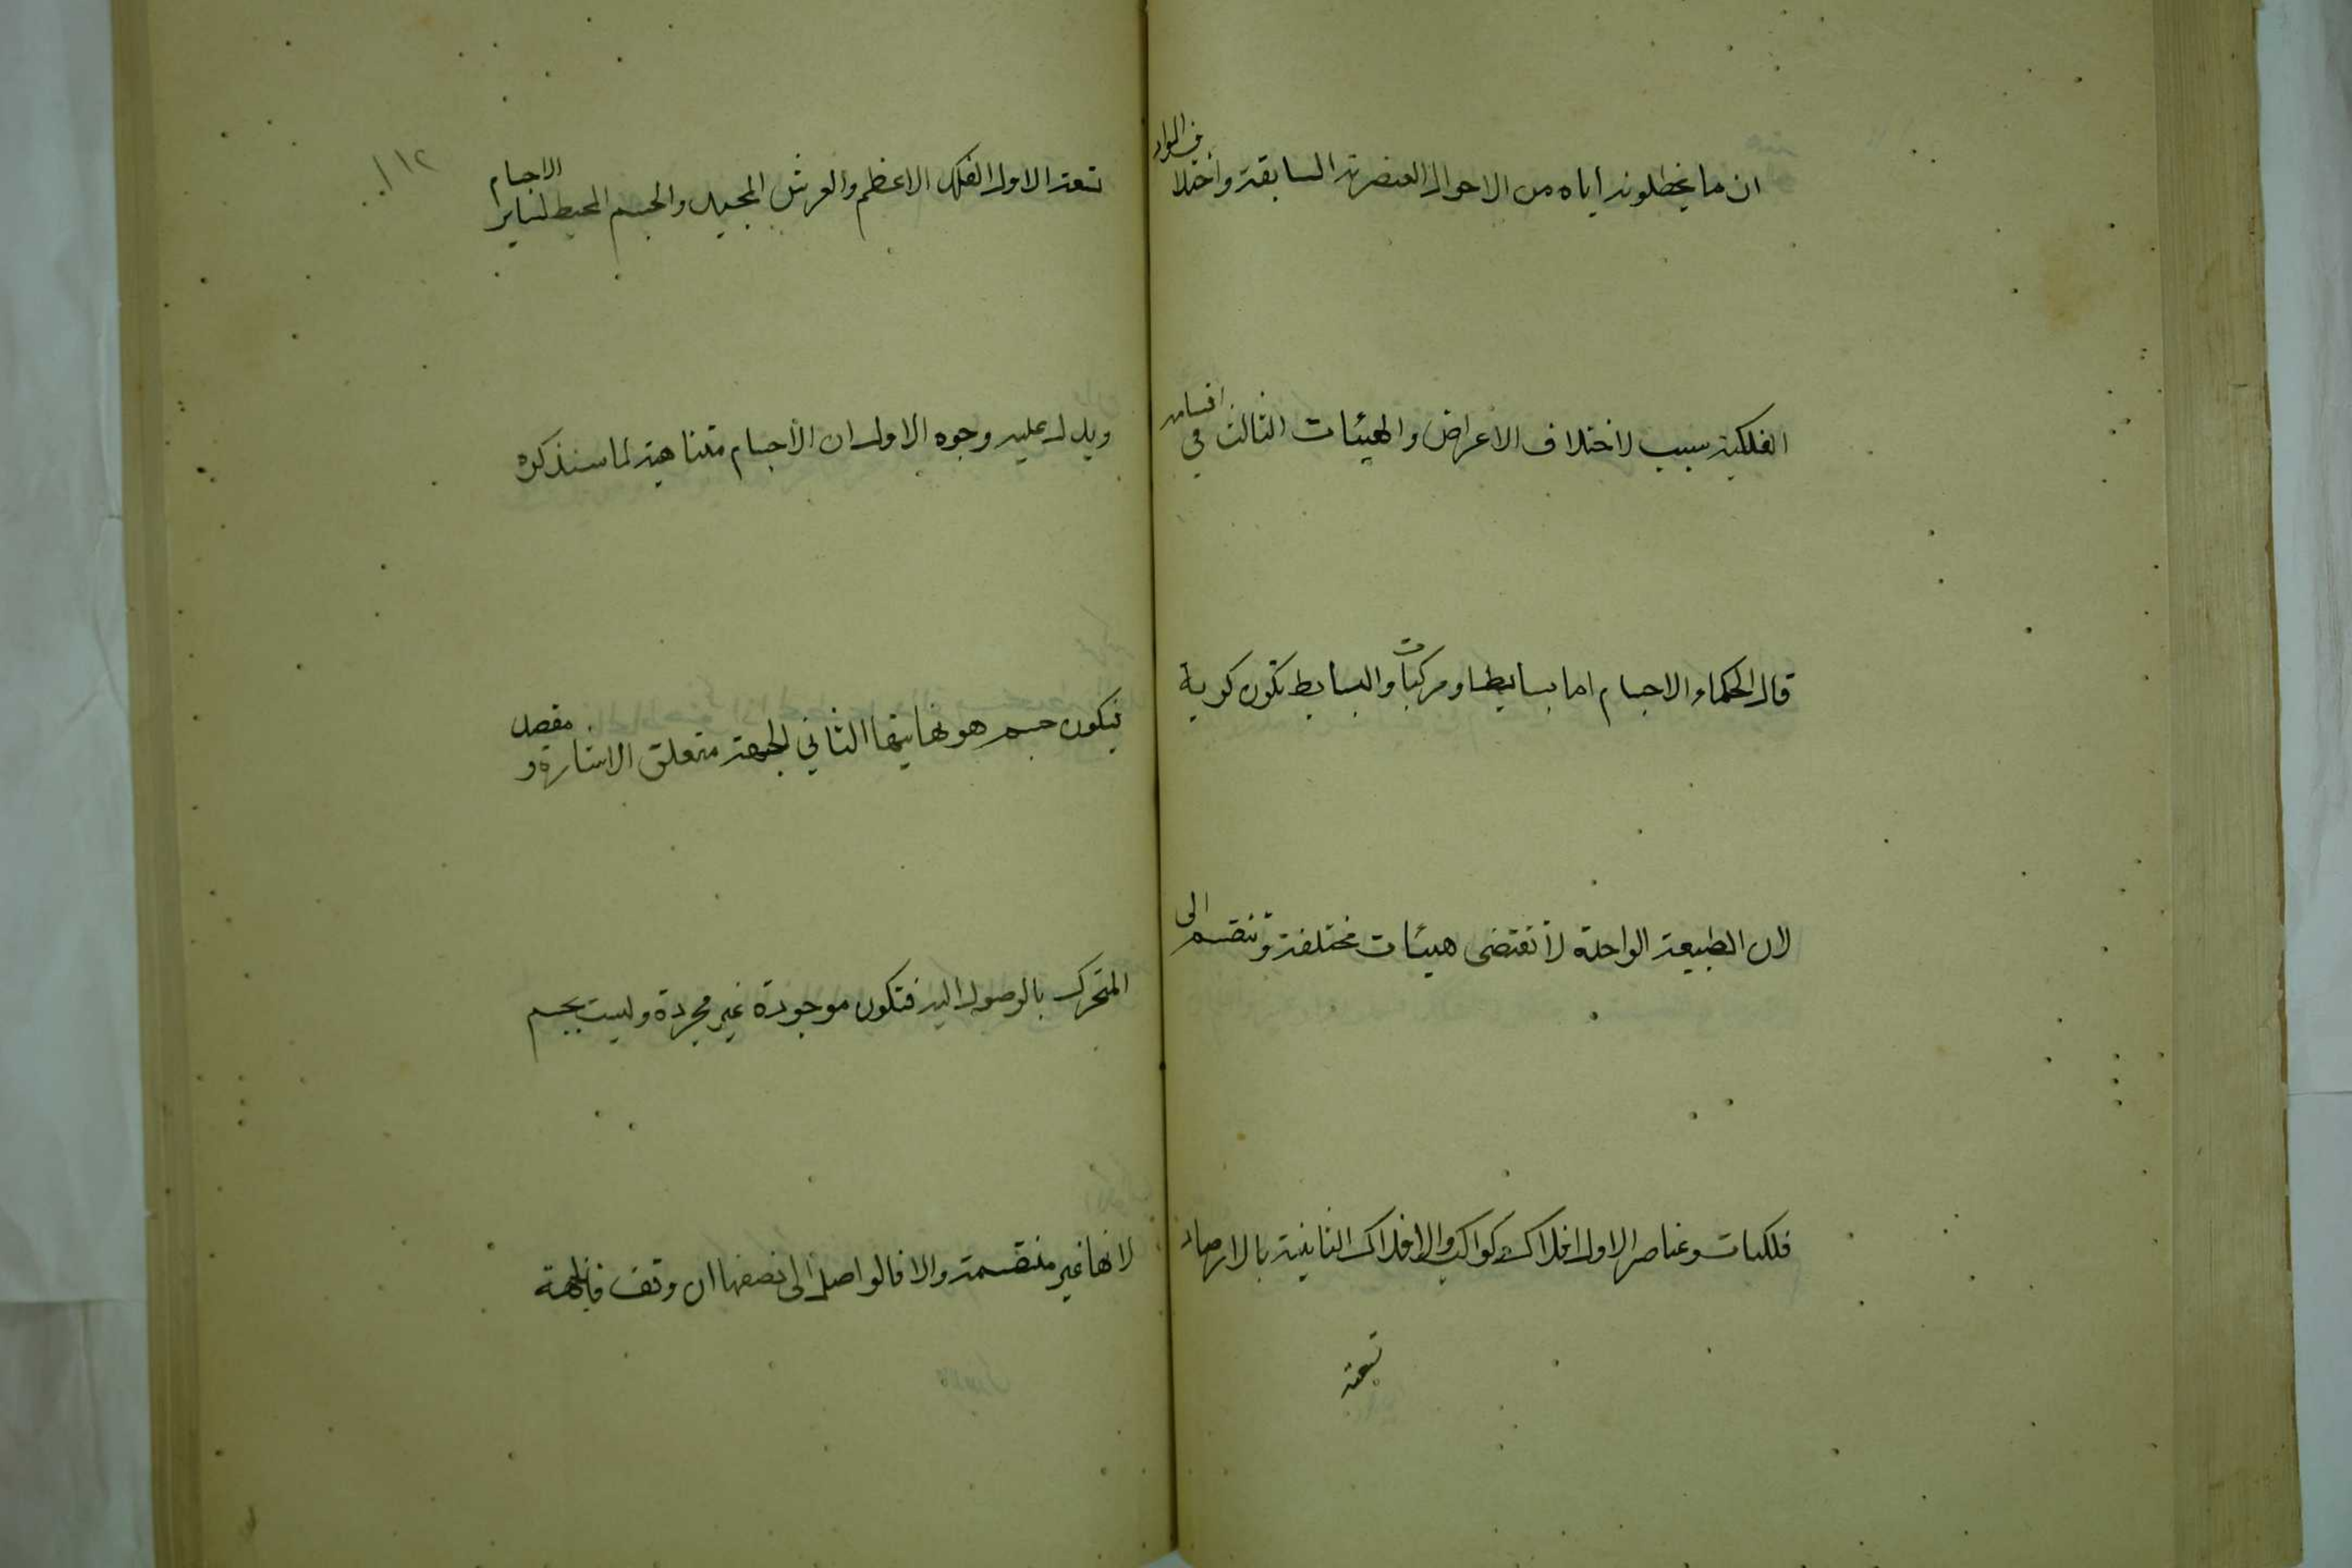 ان ما يخطلونه اياه من الاحوال العنصرية السابقة واختلاف المواد
الفلكية سبب لاختلاف الاعراض والهيئات الثالث في اقسامه
قال الحكماء الاجسام اما بسايط او مركبات والبسايط تكون كوية
لان الطبيعة الواحدة لا تقتضى هيئات مختلفة وتنقسم الى
فلكيات وعناصر الاول افلاك وكواكب والافلاك الثانية بالارصاد
تسعة
١١٢
تسعة الاول الفلك الاعظم والعرش المجيد والجسم المحيط لساير الاجسام
ويدل عليه وجوه الاول ان الأجسام متناهية لما سنذكره
فيكون جسم هو نهايتها الثاني الجهة متعلق الاشارة و مقصد
المتحرك بالوصول اليه فتكون موجودة غير مجردة وليست بجسم
لانها غير منقسمة والا فالواصل الى نصفها ان وقف فالجهة